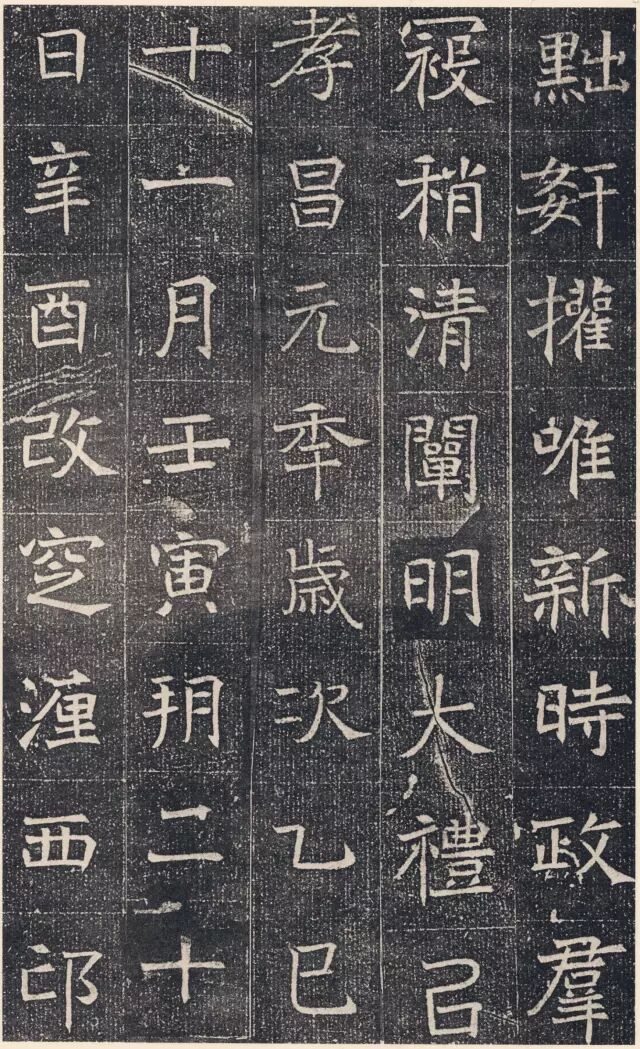 黜奸權唯新時政羣
寇稍清闡明大禮㠯
孝昌元年歲次乙巳
十一月壬寅朔二十
日辛酉改窆瀍西邙